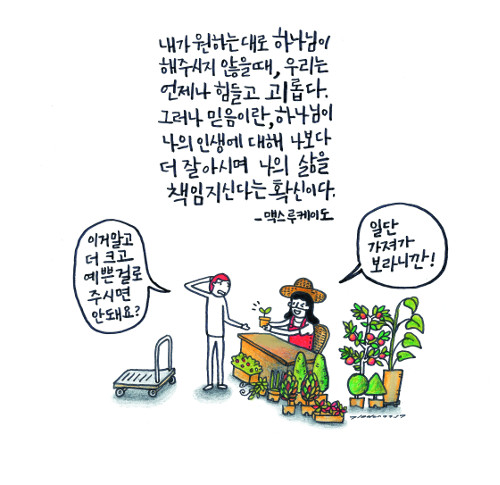 내가 원하는대로 하나님이
해주시지 않을때, 우리는
언제나 힘들고 괴롭다.
그러나 믿음이란, 하나님이
나의 인생에 대해 나보다
더 잘 아시며 나의 삶을
책임지신다는 확신이다.
-맥스루케이도
이거말고
더 크고
예쁜걸로
주시면
안돼요?
일단
가져가
보라니깐!